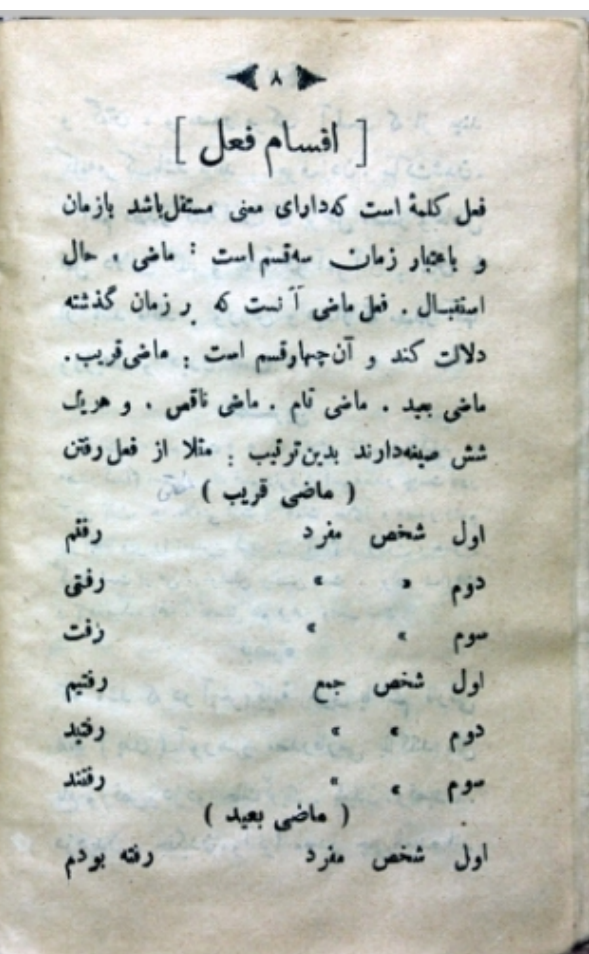 ۸
[ اقسام فعل ]
فعل کلمهٔ است که دارای معنی مستقل باشد بازمان
و باعتبار زمان سه قسم است : ماضی ، حال
استقبال . فعل ماضی آنست که بر زمان گذشته
دلالت کند و آن چهار قسم است : ماضی قریب .
ماضی بعید . ماضی تام . ماضی ناقص . و هریک
شش صیغه دارند بدین ترتیب : مثلا از فعل رفتن
( ماضی قریب )
اول شخص مفرد رفتم
دوم » » رفتی
سوم » » رفت
اول شخص جمع رفتیم
دوم » » رفتید
سوم » » رفتند
( ماضی بعید )
اول شخص مفرد رفته بودم